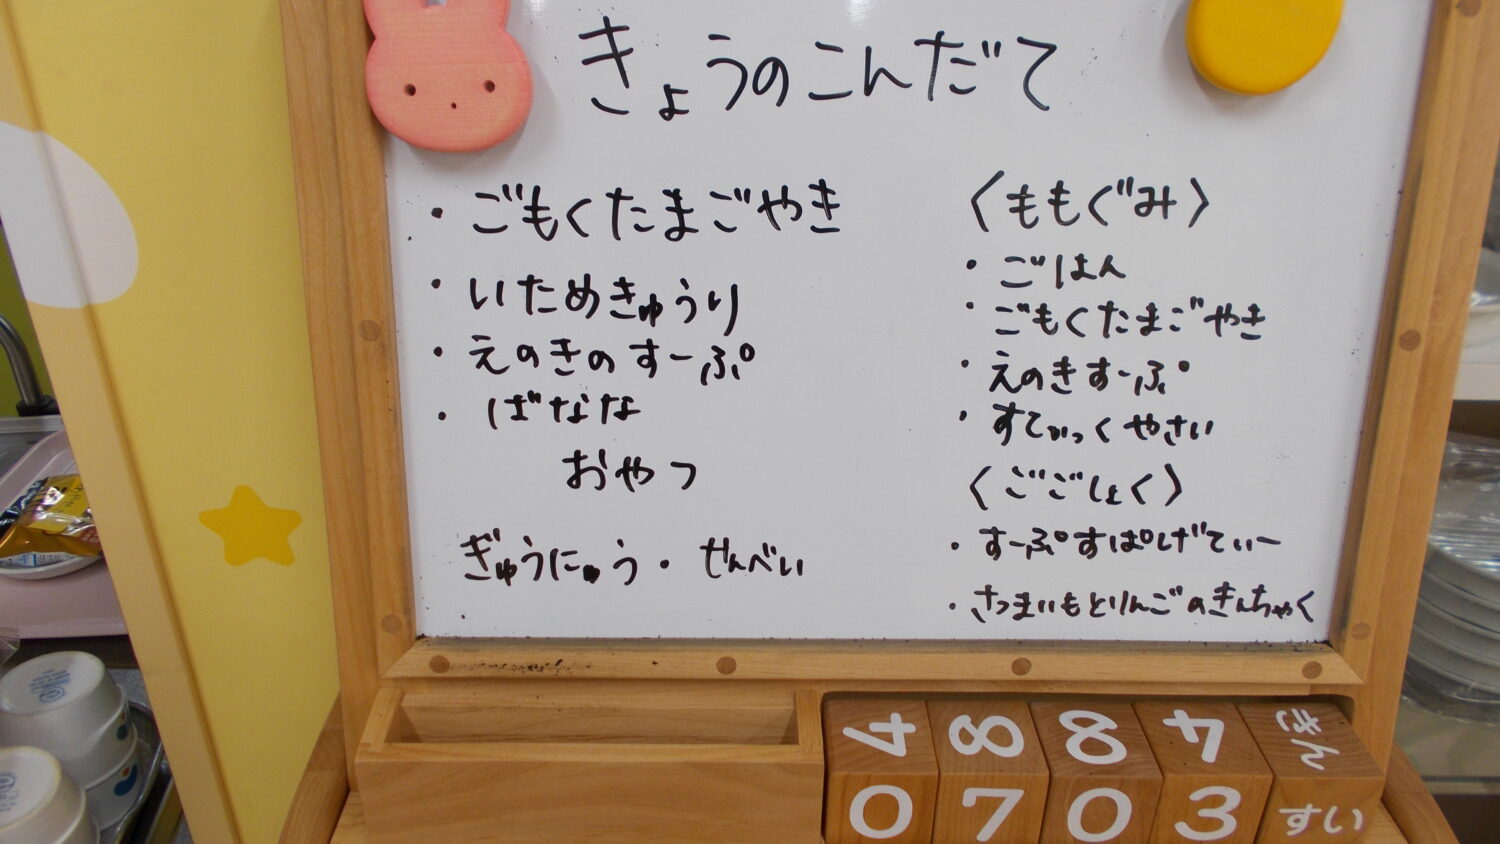 きょうのこんだて
・ごもくたまごやき
・いためきゅうり
・えのきのすーぷ
・ばなな
おやつ
ぎゅうにゅう・せんべい
〈ももぐみ〉
・ごはん
・ごもくたまごやき
・えのきすーぷ
・すてぃっくやさい
〈ごごしょく〉
・すーぷすぱげてぃー
・さつまいもとりんごのきんちゃく
4 8 8 4 きん
0 7 0 3 すい